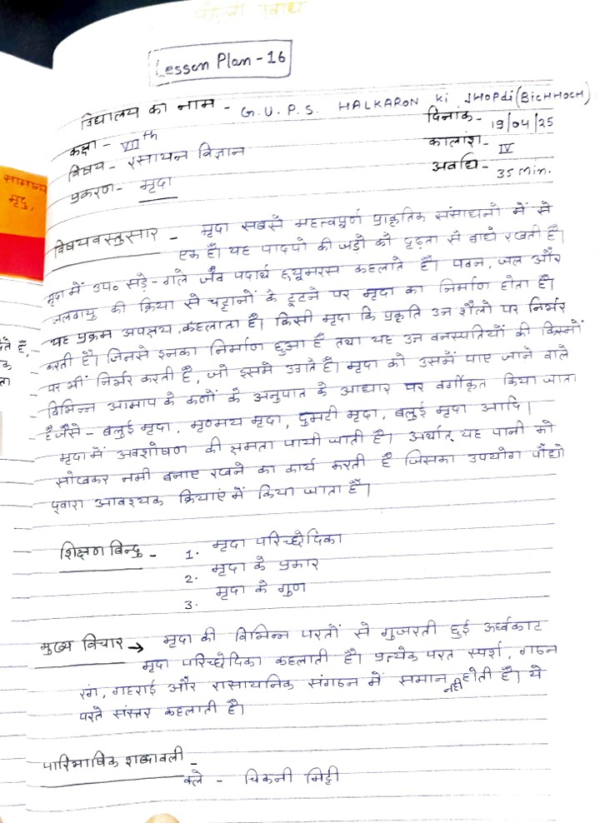 Lesson Plan - 16
विद्यालय का नाम - G.U.P.S. HALKARON ki JHOPdi (BICHHOCH)
दिनाक- 19/04/25
कक्षा - VII th
कालांश- IV
विषय - रसायन विज्ञान
अवधि- 35 Min.
प्रकरण- मृदा
विषयवस्तुसार - मृदा सबसे महत्वपूर्ण प्राकृतिक संसाधनों में से
एक है। यह पादपो की जड़ो को दृढ़ता से बाधे रखती है।
मृदा में उप० सड़े-गले जैव पदार्थ ह्यूमरस कहलाते है। पवन, जल और
जलवायु की क्रिया से चट्टानों के टूटने पर मृदा का निर्माण होता है।
यह प्रक्रम अपक्षय कहलाता है। किसी मृदा कि प्रकृति उन शैलो पर निर्भर
करती है। जिनसे इनका निर्माण हुआ है तथा यह उन वनस्पतियों की किस्मों
पर भी निर्भर करती है, जो इसमे उगते है। मृदा को उसमें पाए जाने वाले
विभिन्न आमाप के कणों के अनुपात के आधार पर वर्गीकृत किया जाता
है जैसे - बलुई मृदा, मृण्मय मृदा, दुमटी मृदा, बलुई मृदा आदि।
मृदा में अवशोषण की क्षमता पायी जाती है। अर्थात् यह पानी को
सोखकर नमी बनाए रखने का कार्य करती है जिसका उपयोग पौधो
द्वारा आवश्यक क्रियाएं में किया जाता है।
शिक्षण बिन्दु - 1. मृदा परिच्छेदिका
2. मृदा के प्रकार
3. मृदा के गुण
मुख्य विचार → मृदा की विभिन्न परतों से गुजरती हुई ऊर्ध्वकाट
मृदा परिच्छेदिका कहलाती है। प्रत्येक परत स्पर्श, गठन
रंग, गहराई और रासायनिक संगठन में समान नही होती है। ये
परते संस्तर कहलाती है।
पारिभाषिक शब्दावली -
क्ले - चिकनी मिट्टी